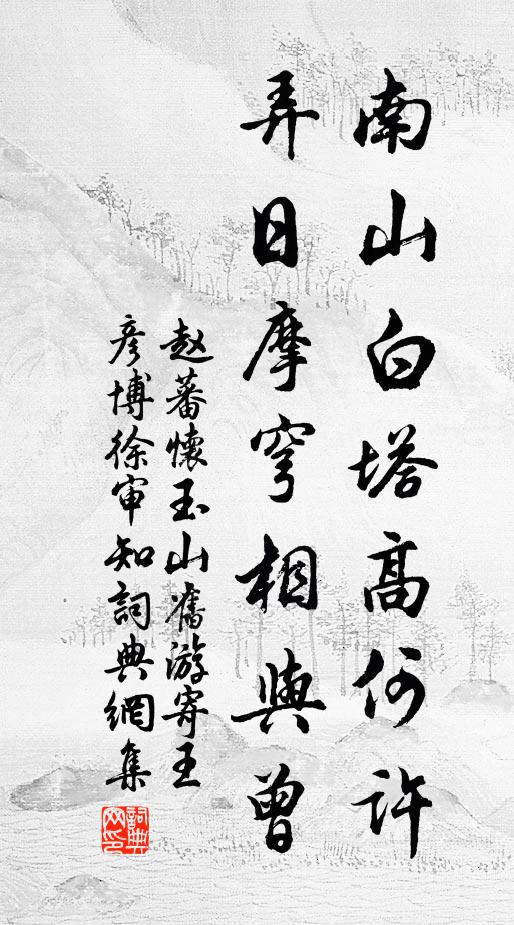 南山白塔高何許
弄日摩穹相與曾
赵蕃懷玉山舊游寄王
彦博徐审知詞典網集
詞典网印